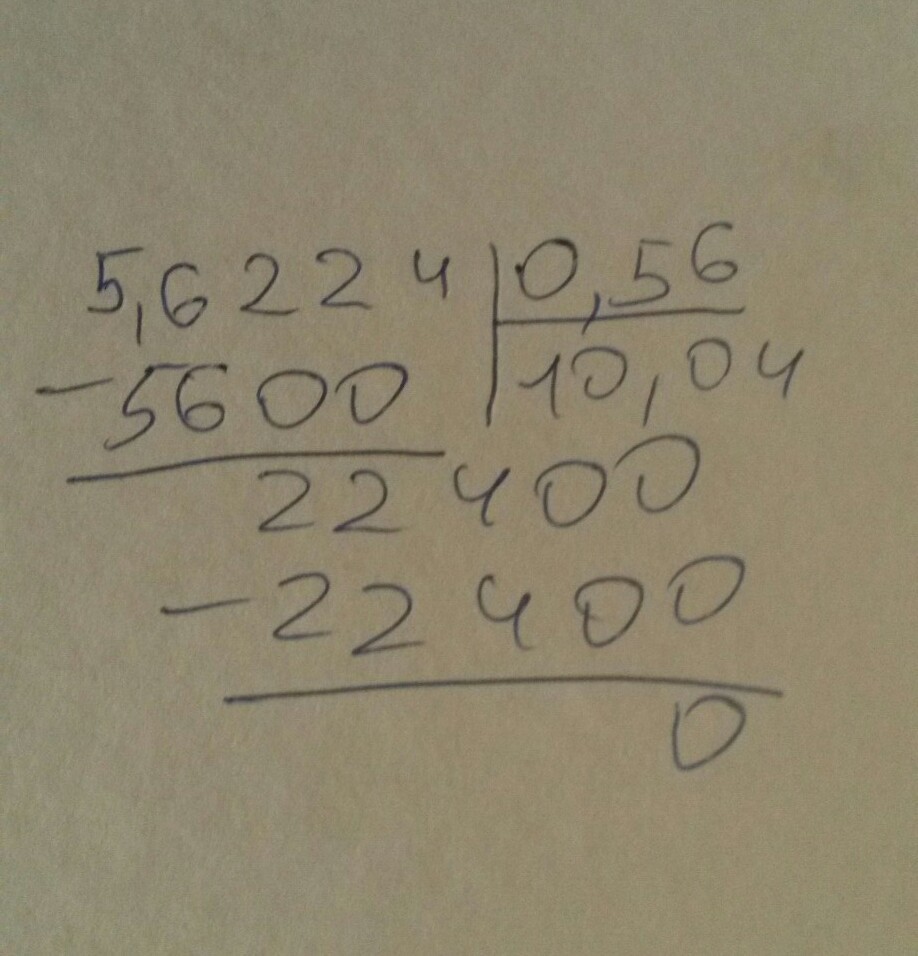 5,6224 | 0,56
-5600 | 10,04
22400
-22400
0